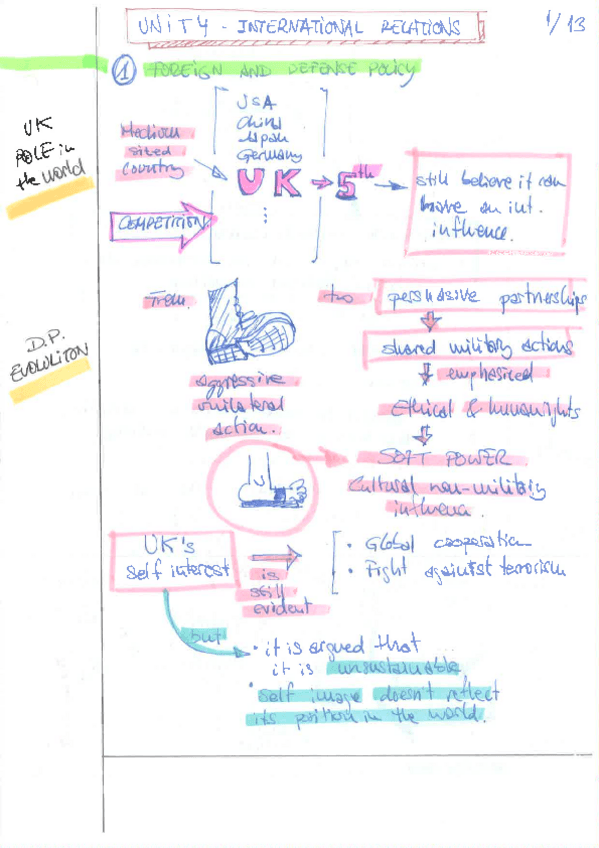 UNIT 4 - INTERNATIONAL RELATIONS
1/13
1 FOREIGN AND DEFENSE POLICY
UK
ROLE in
the world
Medium
sized
country
USA
China
Japan
Germany
UK → 5th
COMPETITION
still believe it can
have an int.
influence.
D.P.
EVOLUTION
From
aggressive
unilateral
action.
to
persuasive partnerships
shared military actions
emphasized
Ethical & human rights
SOFT POWER
Cultural non-military
influence.
UK's
self interest
is
still
evident
• Global cooperation
• Fight against terrorism
but
• it is argued that
it is unsustainable
• self image doesn't reflect
its position in the world.